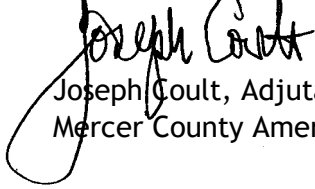 Joseph Coult
Joseph Coult, Adjuta
Mercer County Amer